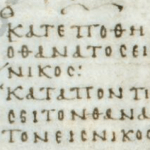 ΚΑΤΕΠΟΘΗ
ΟΘΑΝΑΤΟΣΕΙ
ΝΙΚΟΣ:
ΚΑΤΑΠΟΝΤΙ
ΣΕΙΤΟΝΘΑΝΑ
ΤΟΝΕΙΣΝΙΚΟΣ